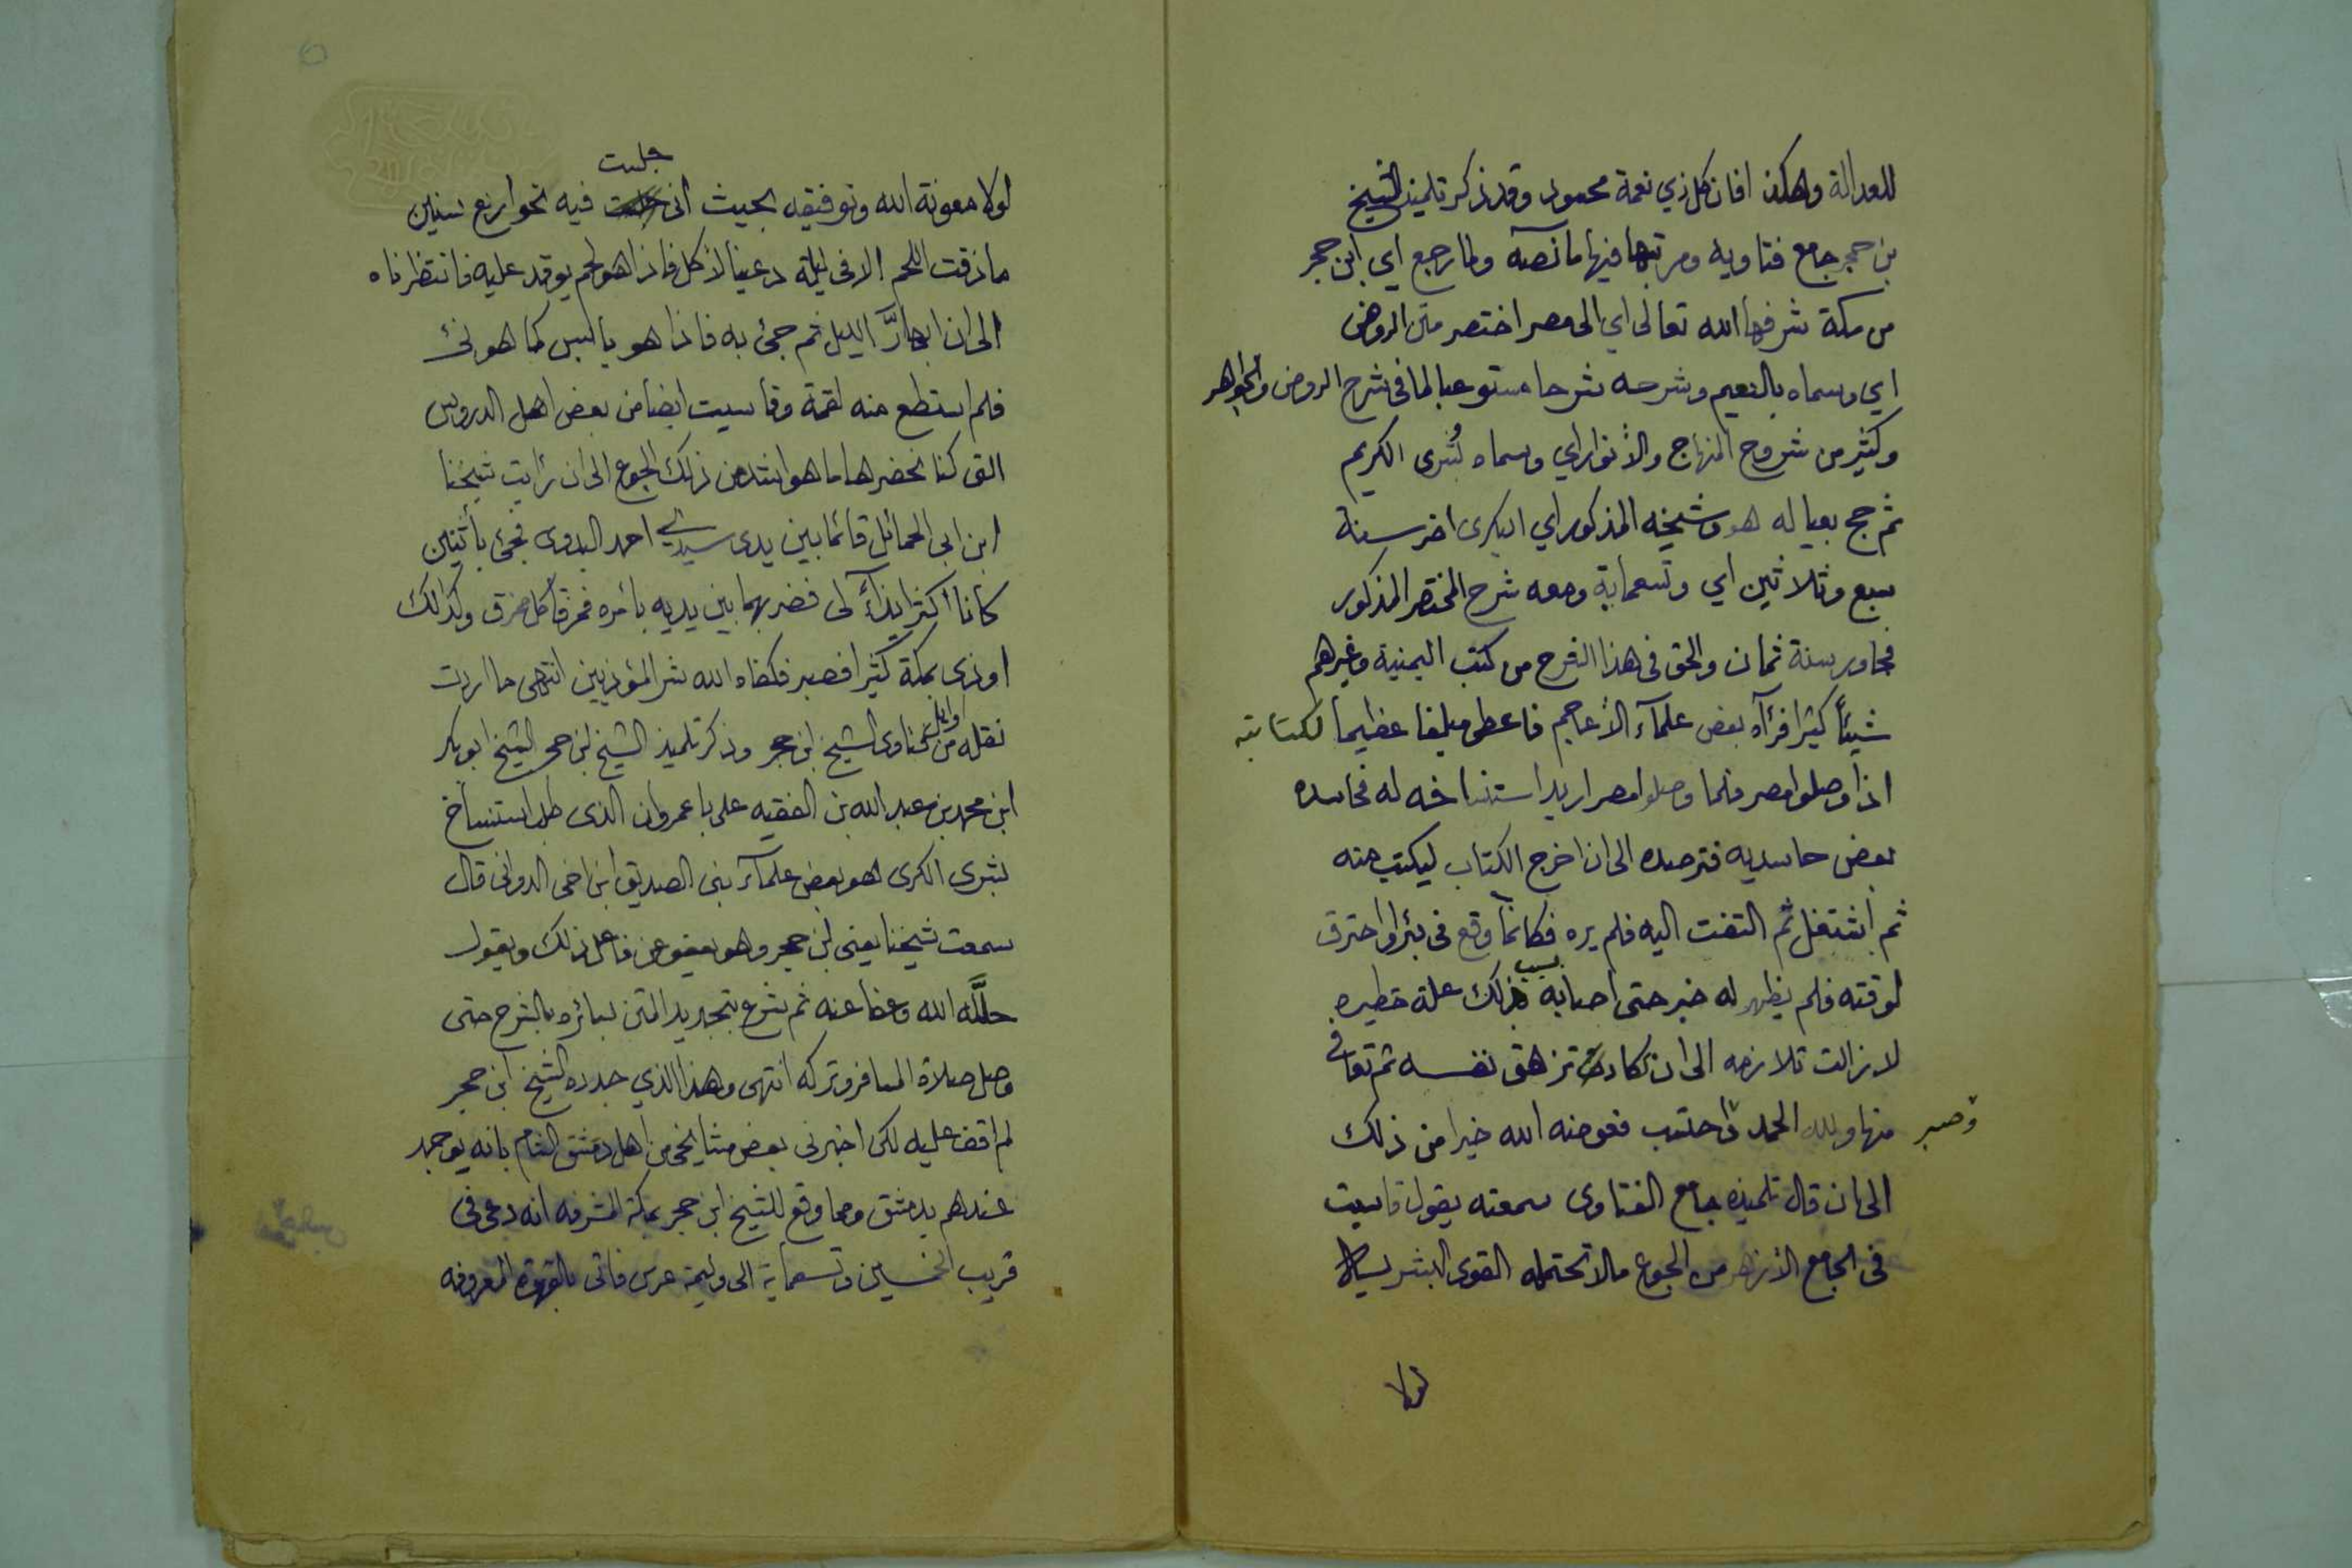 للعدالة وهكذا فان كل ذي نعمة محسود وقد ذكر تلميذ الشيخ
بن حجر جامع فتاويه ومرتبها فيها ما نصه ولما رجع اي ابن حجر
من مكة شرفها الله تعالى اي الى مصر اختصر متن الروض
اي وسماه بالنعيم وشرحه شرحا مستوعبا لما في شرح الروض والجواهر
وكثير من شروح المنهاج والأنوار اي وسماه بُشرى الكريم
ثم حج بعياله هو وشيخه المذكور اي البكرى اخر سنة
سبع وثلاثين اي وتسعماية ومعه شرح المختصر المذكور
فجاور سنة ثمان والحق في هذا الشرح من كتب اليمنية وغيرهم
شيئاً كثيرا فرآه بعض علمآء الأعاجم فاعطى مبلغا عظيما لكتابته
اذا وصلوا مصر فلما وصلوا مصر اريد استنساخه له فحاسده
بعض حاسديه فترصده الى ان اخرج الكتاب ليكتب منه
ثم اشتغل ثم التفت اليه فلم يره فكانما وقع في بئر او احترق
لوقته فلم يظهر له خبر حتى اصابه بسبب ذلك علة خطيره
لا زالت تلازمه الى ان كادت تزهق نفسه ثم تعافى
منها ولله الحمد وصبر واحتسب فعوضه الله خيرا من ذلك
الى ان قال تلميذه جامع الفتاوى سمعته يقول قاسيت
في الجامع الأزهر من الجوع مالا تحتمله القوى البشرية
لولا
جلست
لولا معونة الله وتوفيقه بحيث انى فيه نحو اربع سنين
ما ذقت اللحم الا في ليلة دعينا لأكل فاذا هو لحم يوقد عليه فانتظرناه
الى ان ابهارَّ الليل ثم جئ به فاذا هو يابس كما هو نئ
فلم استطع منه لقمة وقاسيت ايضا من بعض اهل الدروس
التى كنا نحضرها ما هو اشد من ذلك الجوع الى ان رأيت شيخنا
ابن ابى الحمائل قائما بين يدى سيدي احمد البدوى فجئ بأثنين
كانا اكثر ايذآءً لى فضربهما بين يديه بأمره فمزقا كل ممزق وكذلك
اوذى بمكة كثيرا فصبر فكفاه الله شر المؤذيين انتهى ما اردت
نقله من اوايل فتاوى الشيخ ابن حجر وذكر تلميذ الشيخ ابن حجر الشيخ ابو بكر
ابن محمد بن عبد الله بن الفقيه على باعمروان الذى طلب استنساخ
بشرى الكرى هو بعض علمآء بنى الصديق ابن اخى الدوانى قال
سمعت شيخنا يعنى ابن حجر وهو يعفو عن فاعل ذلك ويقول
حلَّله الله وعفا عنه ثم شرع بتجديد المتن بسائره بالشرح حتى
وصل صلاة المسافر وتركه انتهى وهذا الذي جدده الشيخ ابن حجر
لم اقف عليه لكن اخبرنى بعض مشايخى من اهل دمشق الشام بانه يوجد
عندهم بدمشق ومما وقع للشيخ ابن حجر بمكة المشرفه انه دعى في
قريب الخمسين وتسعماية الى وليمة عرس فاتى بالقهوة المعروفه